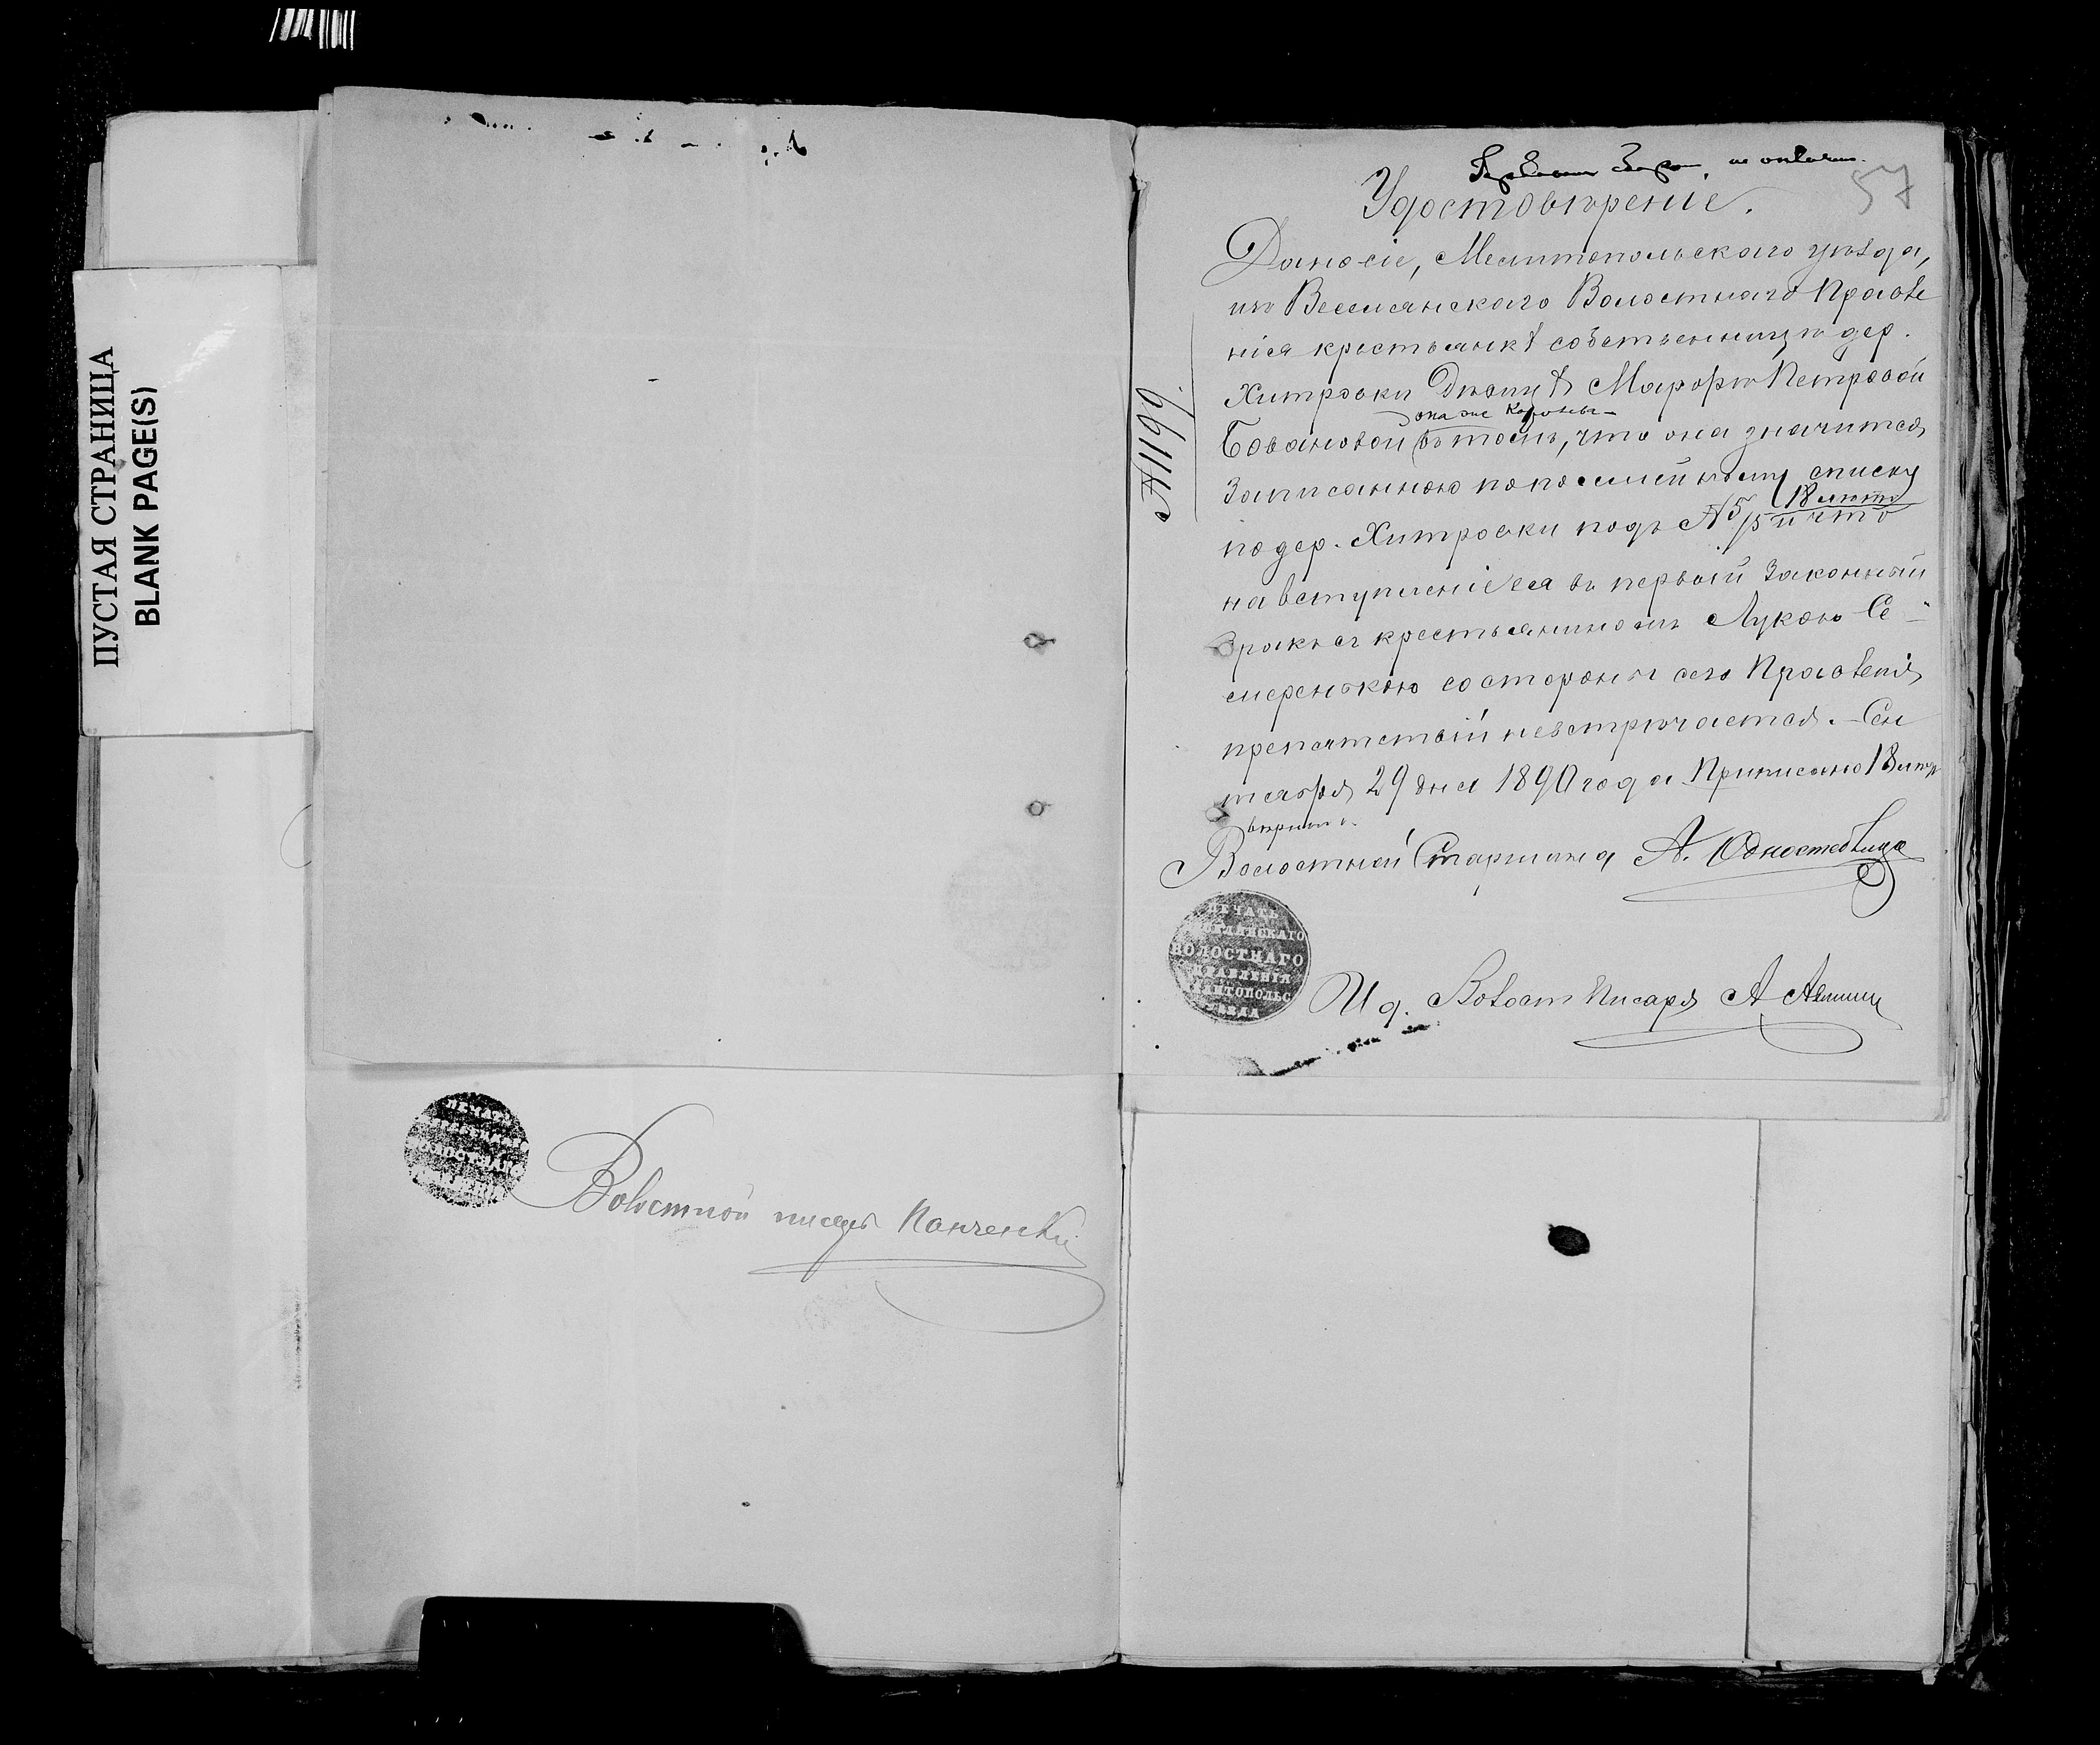 ПУСТАЯ СТРАНИЦА
BLANK PAGE(S)
57
Удостовѣреніе.
Дано сіе, Мелитопольскаго уѣзда,
изъ Веселянскаго Волостнаго Правле
нія крестьянкѣ собственницѣ дер.
Хитровки Дѣвицѣ Марфѣ Петровой
она же
Бовановой въ томъ, что она значится
Записанною по посемейному списку
18 лѣтъ
по дер. Хитровки подъ № 5/5 и что
на вступленіе ея въ первый Законный
Бракъ съ крестьяниномъ Лукою Се-
меренькою со стороны сего Правленія
препятствій невстрѣчается. – Сен
тября 29 дня 1890 года Приписано 18 лѣтъ
вѣрно.
Волостной Старшина А.
№ 1199.
ПЕЧАТЬ
ВОЛОСТНАГО
ПРАВЛЕНІЯ
УѢЗДА
И д. Волост Писаря А
ПЕЧАТЬ
Волостной писарь Панченко